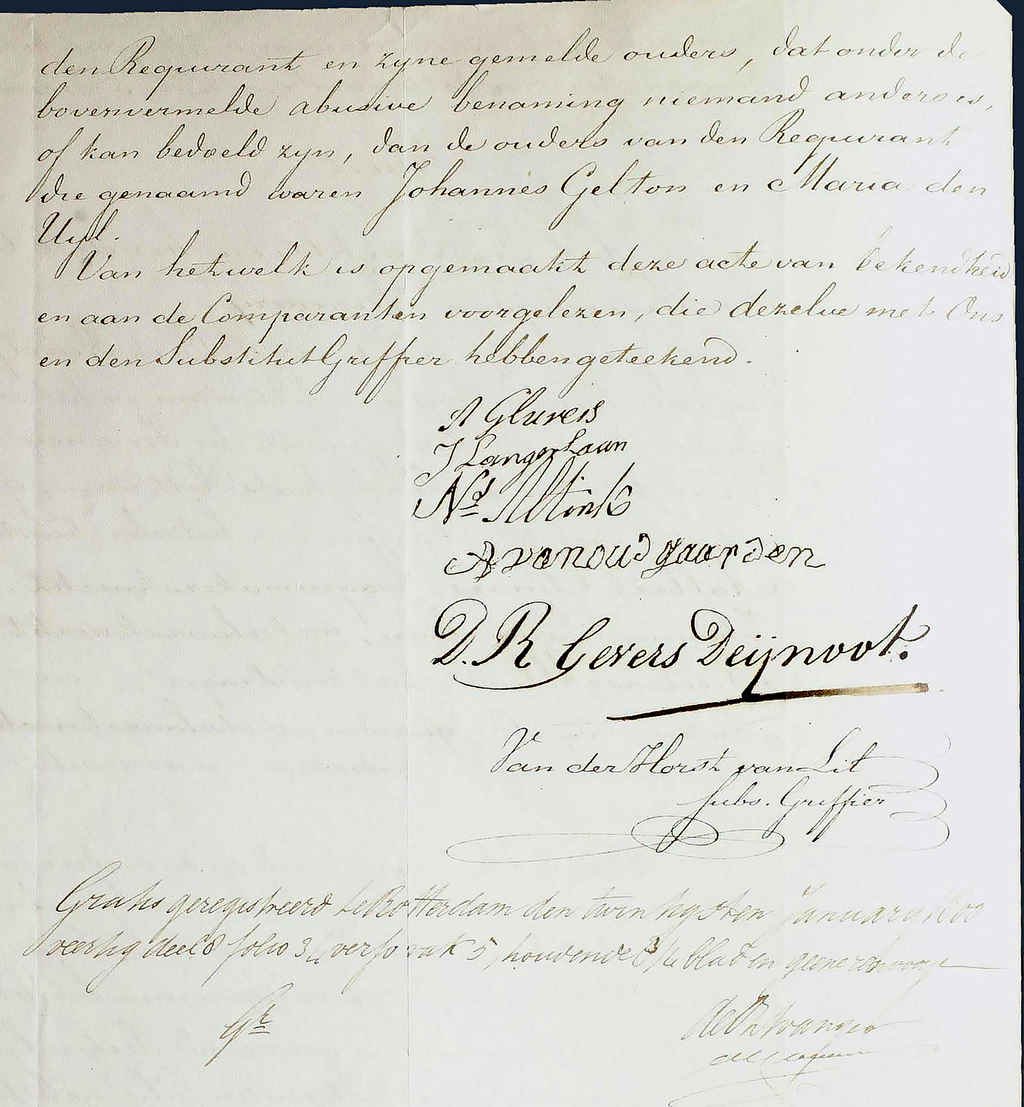 den Requirant en zyne gemelde ouders, dat onder de
bovenvermelde abusive benaming niemand anders is,
of kan bedoeld zyn, dan de ouders van den Requirant
die genaamd waren Johannes Gelton en Maria den
Uyl.
Van hetwelk is opgemaakt deze acte van bekendheid
en aan de Comparanten voorgelezen, die dezelve met Ons
en den Substitut Griffier hebben geteekend.
J Langerlaan
Ns. Altink
A van oud gaarden
D. R Gevers Deijnoot.
Van der Horst van Lit
Subs. Griffier
Gratis geregistreerd te Rotterdam den twintigsten January 1800
veertig deel 8 folio 3 verso vak 5, houdende blad en geene
De Ontvanger